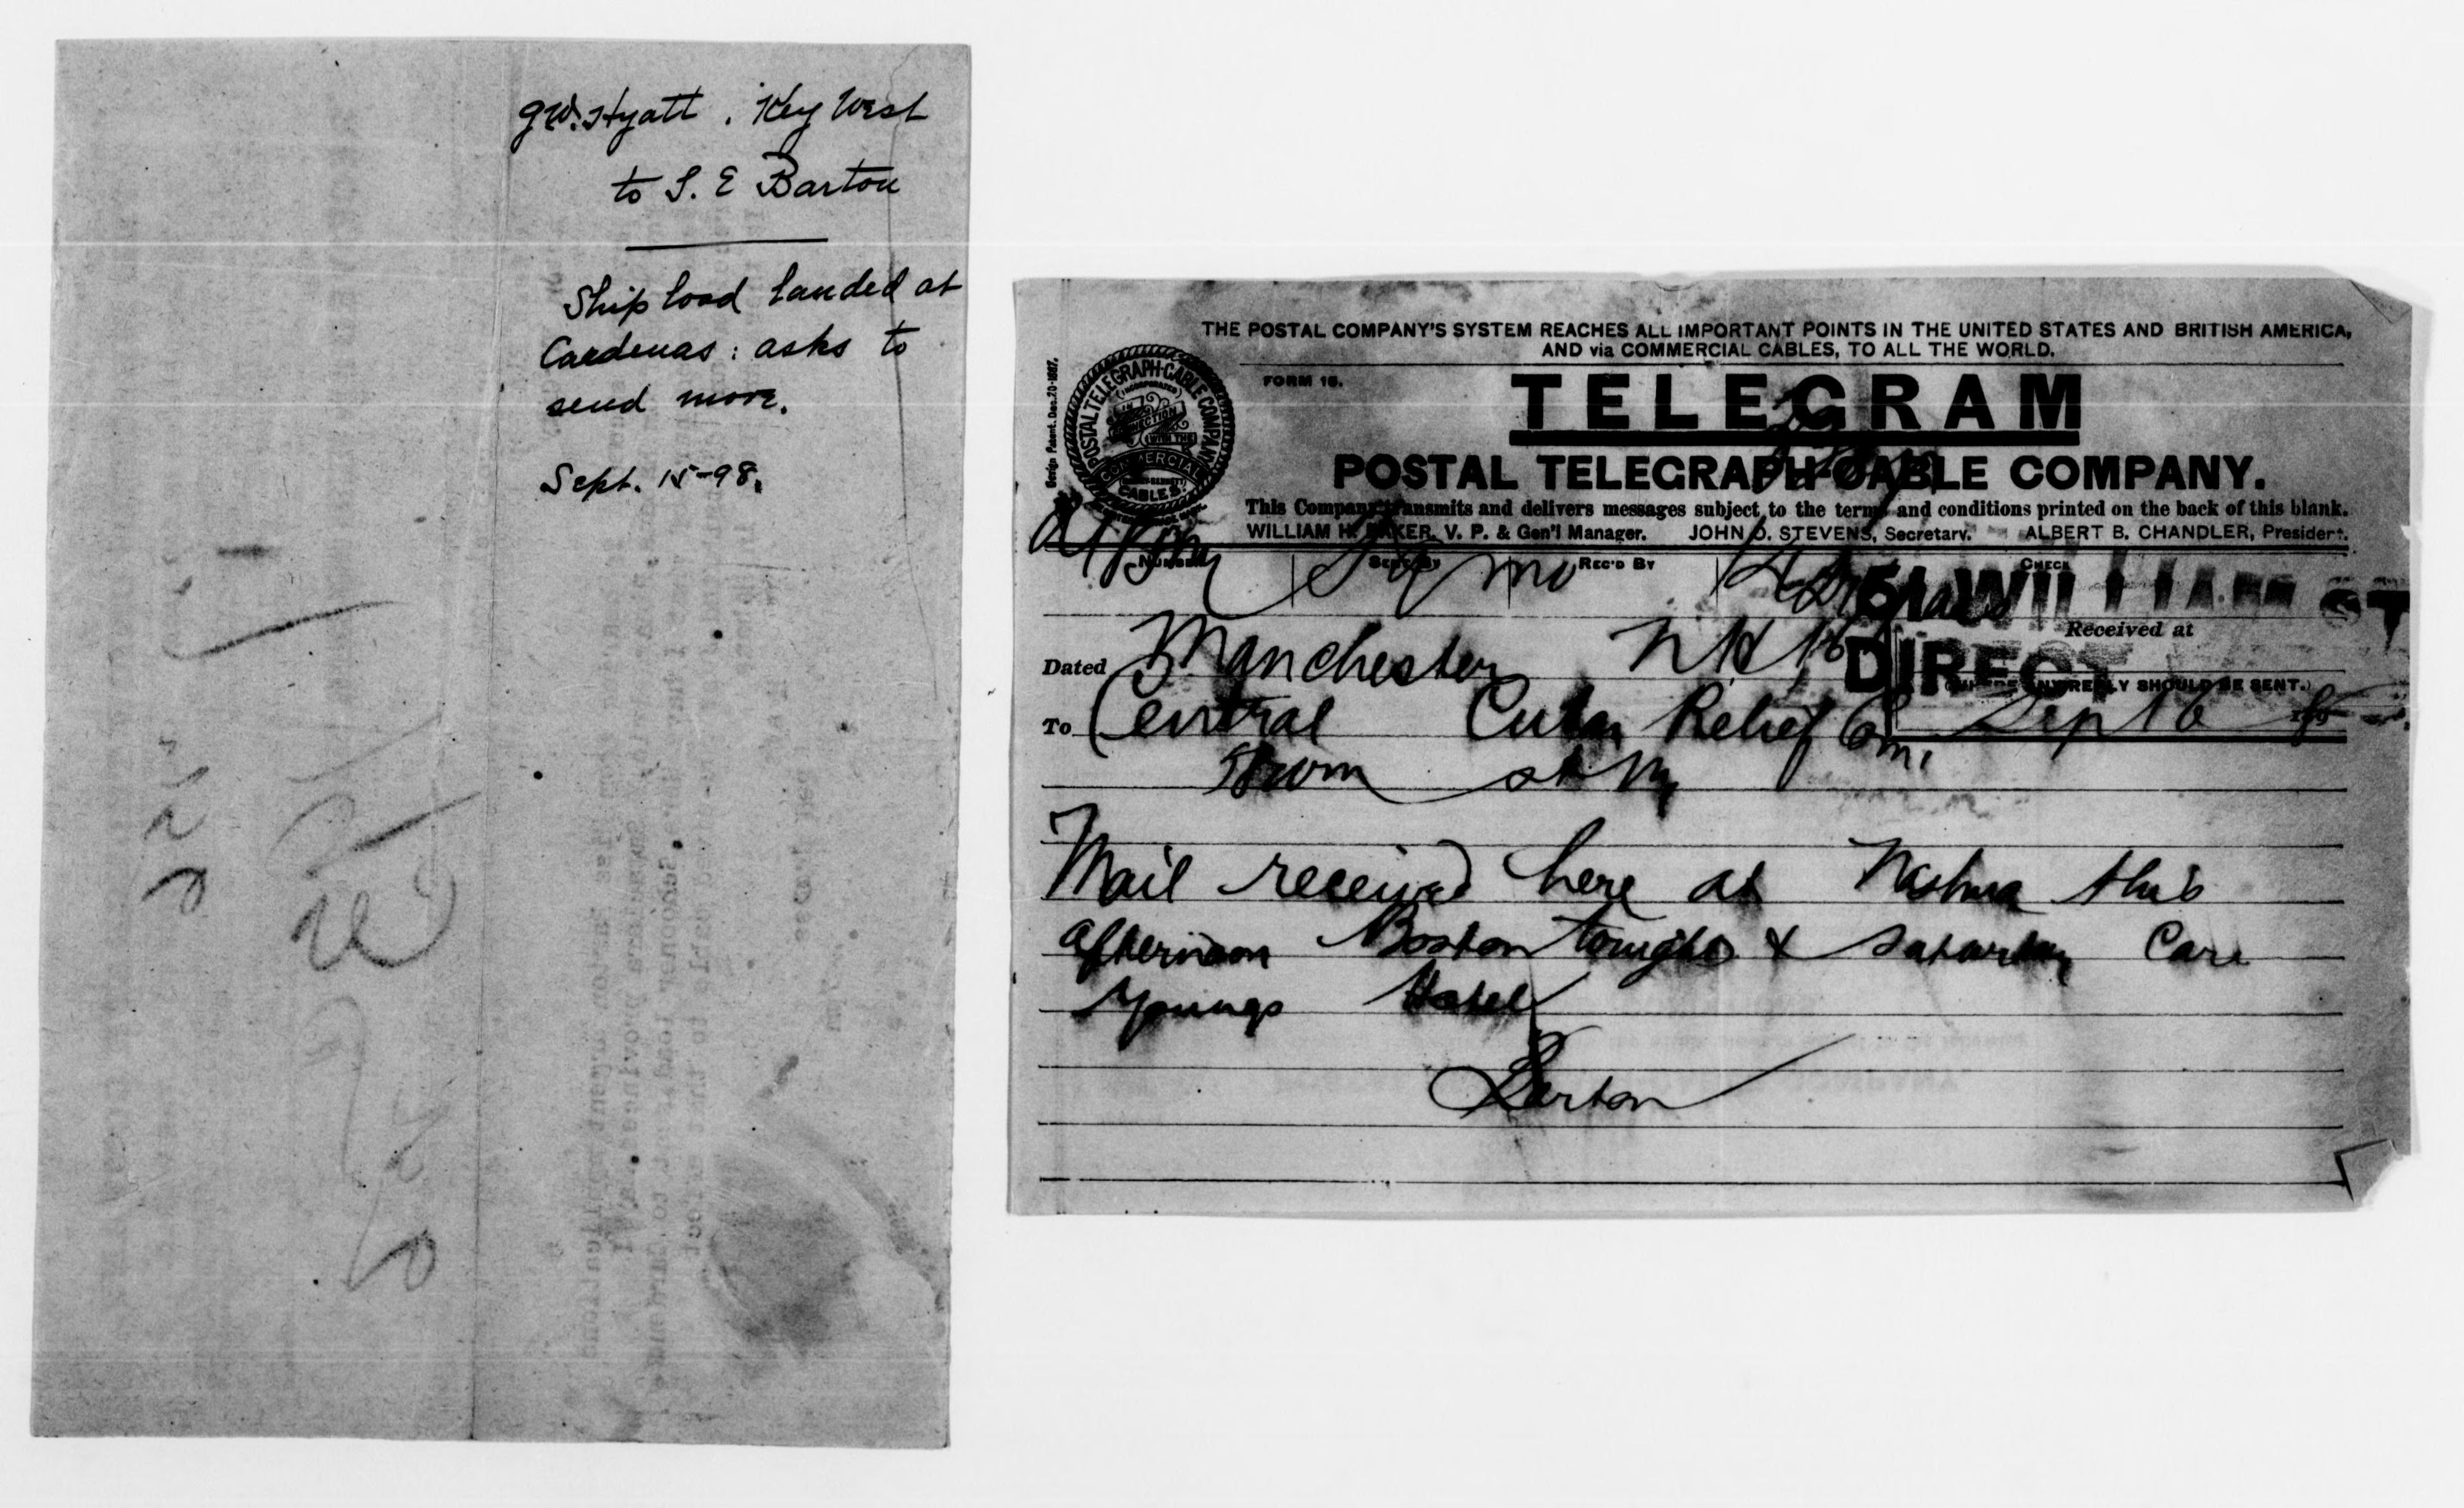 G.W. Hyatt. Key West
to S. E Barton
Ship load landed at
Cardenas: asks to
send more.
Sept. 15-98.
THE POSTAL COMPANY'S SYSTEM REACHES ALL IMPORTANT POINTS IN THE UNITED STATES AND BRITISH AMERICA,
AND via COMMERCIAL CABLES, TO ALL THE WORLD.
Design Patent. Dec. 20-1887.
POSTAL TELEGRAPH-CABLE COMPANY
(INCORPORATED)
IN
CONNECTION
WITH THE
COMMERCIAL
CABLES
FORM 16.
TELEGRAM
POSTAL TELEGRAPH-CABLE COMPANY.
This Company transmits and delivers messages subject to the terms and conditions printed on the back of this blank.
WILLIAM H. BAKER, V. P. & Gen'l Manager. JOHN O. STEVENS, Secretary. ALBERT B. CHANDLER, President.
NUMBER SENT BY REC'D BY CHECK
51 WILLIAM ST
Received at
DIRECT
(WHERE ANY REPLY SHOULD BE SENT.)
Dated Manchester NH 16
To Central Cuban Relief Com. Sep 16 189
Mail received here at Nashua this
afternoon Boston tonight & Saturday Care
Youngs Hotel
Barton